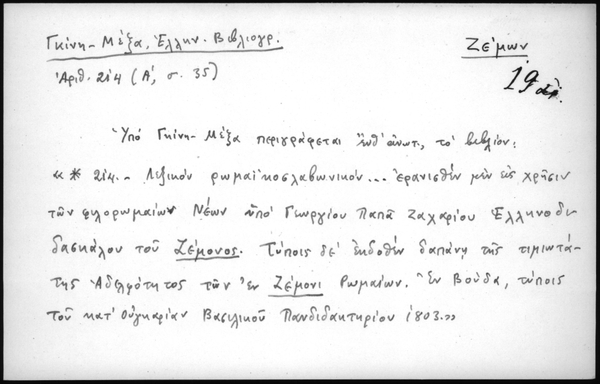 Γκίνη - Μέξα, Ἑλλην. Βιβλιογρ.
Ζέμων
Ἀριθ. 214 (Α', σ. 35)
19
Ὑπό Γκίνη - Μέξα περιγράφεται ἔνθ' ἀνωτ. τό βιβλίον:
«* 214.- Λεξικόν ρωμαϊκοσλαβωνικόν... ἐρανισθέν μὲν εἰς χρῆσιν
τῶν φιλορωμαίων Νέων ὑπό Γεωργίου Παπᾶ Ζαχαρίου Ἑλληνοδι-
δασκάλου τοῦ Ζέμονος. Τύποις δέ ἐκδοθέν δαπάνῃ τῆς τιμιωτά-
της Ἀδελφότητος τῶν ἐν Ζέμονι Ρωμαίων. Ἐν Βούδα, τύποις
τοῦ κατ' Οὐγκαρίαν Βασιλικοῦ Πανδιδακτηρίου 1803.»